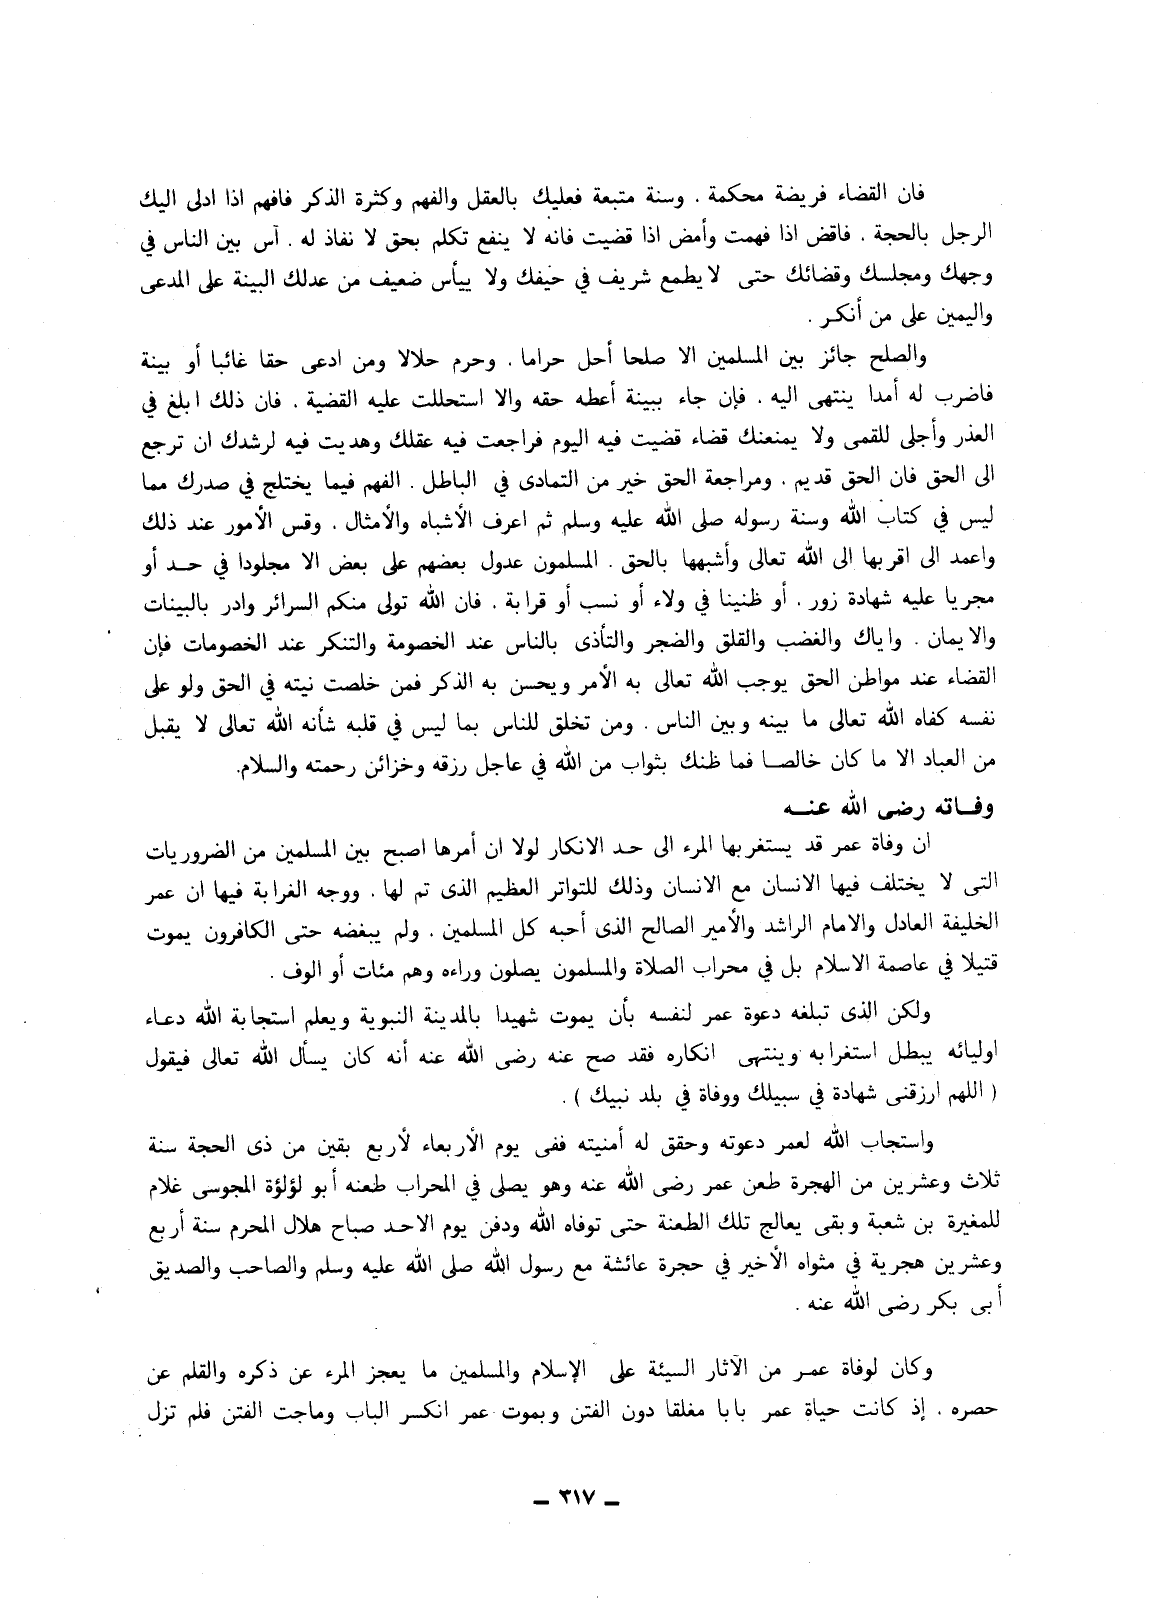 فان القضاء فريضة محكمة . وسنة متبعة فعليك بالعقل والفهم وكثرة الذكر فافهم اذا ادلى اليك
الرجل بالحجة . فاقض اذا فهمت وأمض اذا قضيت فانه لا ينفع تكلم بحق لا نفاذ له . آس بين الناس في
وجهك ومجلسك وقضائك حتى لا يطمع شريف في حيفك ولا ييأس ضعيف من عدلك البينة على المدعى
واليمين على من أنكر .
والصلح جائز بين المسلمين الا صلحا أحل حراما . وحرم حلالا ومن ادعى حقا غائبا أو بينة
فاضرب له أمدا ينتهى اليه . فإن جاء ببينة أعطه حقه والا استحللت عليه القضية . فان ذلك ابلغ في
العذر وأجلى للقمى ولا يمنعنك قضاء قضيت فيه اليوم فراجعت فيه عقلك وهديت فيه لرشدك ان ترجع
الى الحق فان الحق قديم . ومراجعة الحق خير من التمادى في الباطل . الفهم فيما يختلج في صدرك مما
ليس في كتاب الله وسنة رسوله صلى الله عليه وسلم ثم اعرف الأشباه والأمثال . وقس الأمور عند ذلك
واعمد الى اقربها الى الله تعالى وأشبهها بالحق . المسلمون عدول بعضهم على بعض الا مجلودا في حد أو
مجريا عليه شهادة زور . أو ظنينا في ولاء أو نسب أو قرابة . فان الله تولى منكم السرائر وادر بالبينات
والايمان . واياك والغضب والقلق والضجر والتأذى بالناس عند الخصومة والتنكر عند الخصومات فإن
القضاء عند مواطن الحق يوجب الله تعالى به الأمر ويحسن به الذكر فمن خلصت نيته في الحق ولو على
نفسه كفاه الله تعالى ما بينه وبين الناس . ومن تخلق للناس بما ليس في قلبه شأنه الله تعالى لا يقبل
من العباد الا ما كان خالصا فما ظنك بثواب من الله في عاجل رزقه وخزائن رحمته والسلام.
وفاته رضى الله عنه
ان وفاة عمر قد يستغربها المرء الى حد الانكار لولا ان أمرها اصبح بين المسلمين من الضروريات
التى لا يختلف فيها الانسان مع الانسان وذلك للتواتر العظيم الذى تم لها . ووجه الغرابة فيها ان عمر
الخليفة العادل والامام الراشد والأمير الصالح الذى أحبه كل المسلمين . ولم يبغضه حتى الكافرون يموت
قتيلا في عاصمة الاسلام بل في محراب الصلاة والمسلمون يصلون وراءه وهم مئات أو الوف .
ولكن الذى تبلغه دعوة عمر لنفسه بأن يموت شهيدا بالمدينة النبوية ويعلم استجابة الله دعاء
اوليائه يبطل استغرابه وينتهى انكاره فقد صح عنه رضى الله عنه أنه كان يسأل الله تعالى فيقول
( اللهم ارزقنى شهادة في سبيلك ووفاة في بلد نبيك ) .
واستجاب الله لعمر دعوته وحقق له أمنيته ففى يوم الأربعاء لأربع بقين من ذى الحجة سنة
ثلاث وعشرين من الهجرة طعن عمر رضى الله عنه وهو يصلى في المحراب طعنه أبو لؤلؤة المجوسى غلام
للمغيرة بن شعبة وبقى يعالج تلك الطعنة حتى توفاه الله ودفن يوم الاحد صباح هلال المحرم سنة أربع
وعشرين هجرية في مثواه الأخير في حجرة عائشة مع رسول الله صلى الله عليه وسلم والصاحب والصديق
أبى بكر رضى الله عنه .
وكان لوفاة عمر من الآثار السيئة على الإسلام والمسلمين ما يعجز المرء عن ذكره والقلم عن
حصره . إذ كانت حياة عمر بابا مغلقا دون الفتن وبموت عمر انكسر الباب وماجت الفتن فلم تزل
ـ ٣١٧ ـ